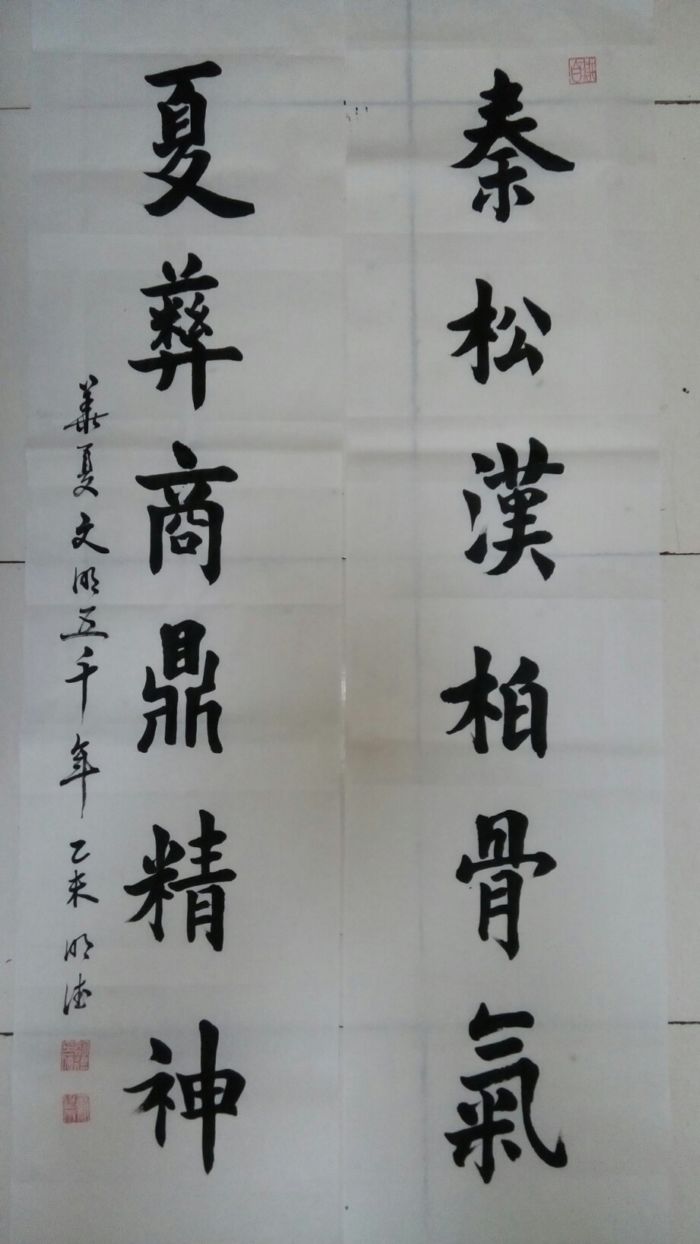 秦松漢柏骨氣
夏彝商鼎精神
華夏文明五千年 乙未 明德